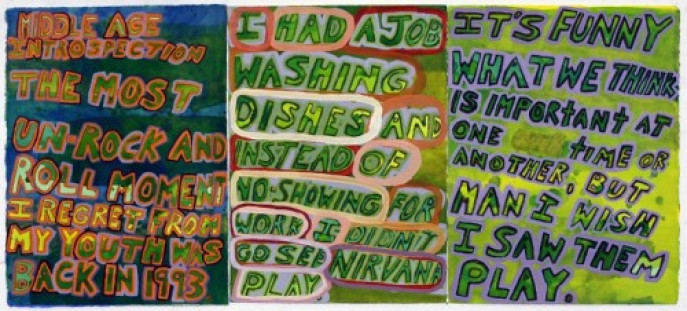 MIDDLE AGE
INTROSPECTION
THE MOST
UN-ROCK AND
ROLL MOMENT
I REGRET FROM
MY YOUTH WAS
BACK IN 1993
I HAD A JOB
WASHING
DISHES AND
INSTEAD OF
NO-SHOWING FOR
WORK I DIDN'T
GO SEE NIRVANA
PLAY.
IT'S FUNNY
WHAT WE THINK
IS IMPORTANT AT
ONE TIME OR
ANOTHER, BUT
MAN I WISH
I SAW THEM
PLAY.